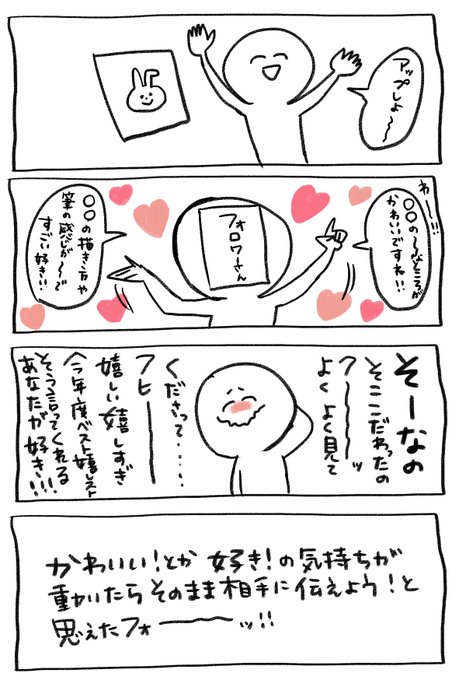 アップしよ〜〜
わーーい!!
〇〇の〜〜なところが
かわいいですね!!
フォロワーさん
〇〇の描き方や
筆の感じが〜〜で
すごい好き!!
そーなの
そここだわったの
クーーーッ
よくよく見て
くださって……
フヒーーー
嬉しい嬉しすぎ
今年度ベスト嬉レスト
そう言ってくれる
あなたが好き!!!
かわいい!とか 好き!の気持ちが
動いたらそのまま相手に伝えよう!と
思えたフォーーーッ!!